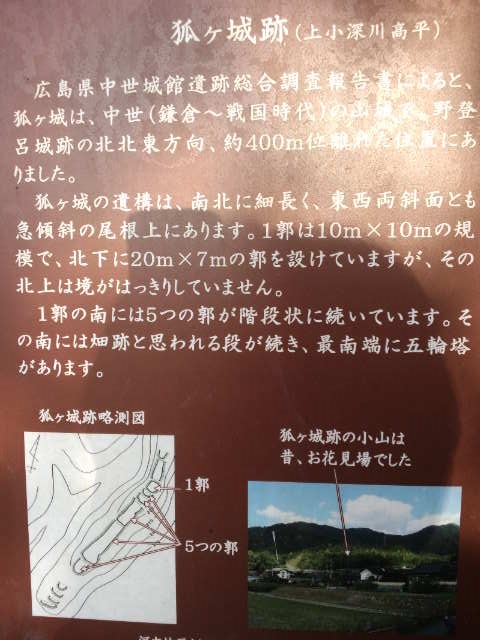 狐ヶ城跡(上小深川高平)
広島県中世城館遺跡総合調査報告書によると、
狐ヶ城は、中世(鎌倉～戦国時代)の山城で、野登
呂城跡の北北東方向、約400m位離れた位置にあ
りました。
狐ヶ城の遺構は、南北に細長く、東西両斜面とも
急傾斜の尾根上にあります。1郭は10m×10mの規
模で、北下に20m×7mの郭を設けていますが、その
北上は境がはっきりしていません。
1郭の南には5つの郭が階段状に続いています。そ
の南には畑跡と思われる段が続き、最南端に五輪塔
があります。
狐ヶ城跡略測図
1郭
5つの郭
狐ヶ城跡の小山は
昔、お花見場でした